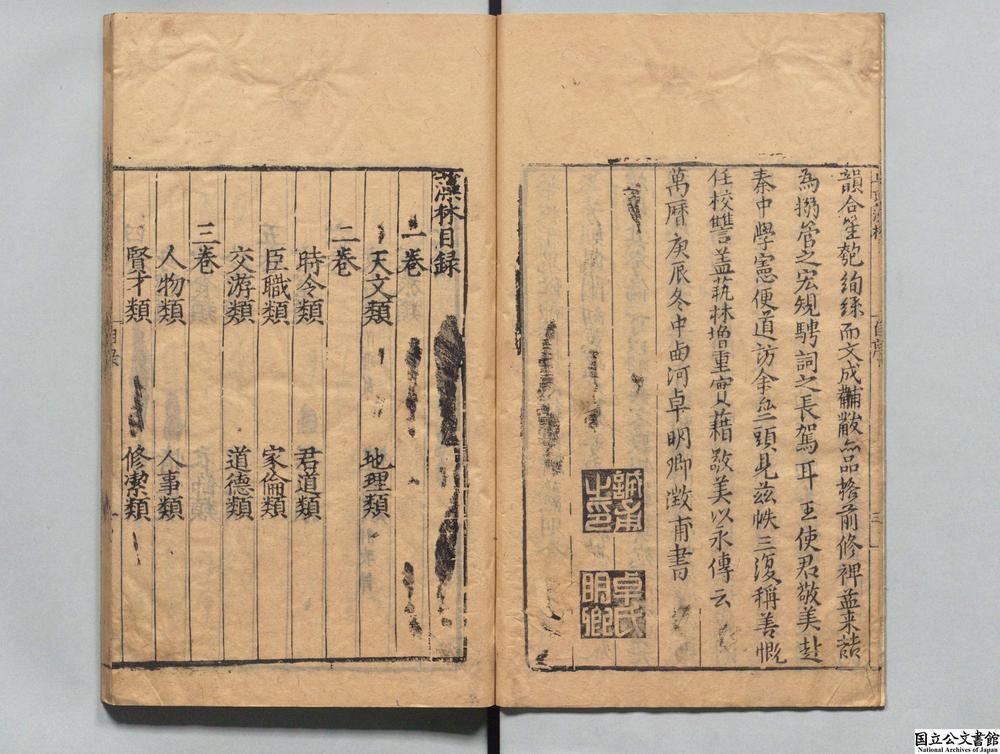 韻合笙匏絢綵而文成黼黻品格前修裨益来喆
為搦管之宏規騁詞之長駕耳王使君敬美赴
秦中學憲便道訪余頭見茲帙三復稱善慨
任校讐盖蓺林增重寳藉敬美以永傳云
萬曆庚辰冬中卤河卓明卿澂甫書
澂甫之印
卓氏明卿
藻林目録
一卷
天文類 地理類
二卷
時令類 君道類
臣職類 家倫類
交游類 道德類
三卷
人物類 人事類
賢才類 修潔類
目录
一
国立公文書館
National Archives of Japan